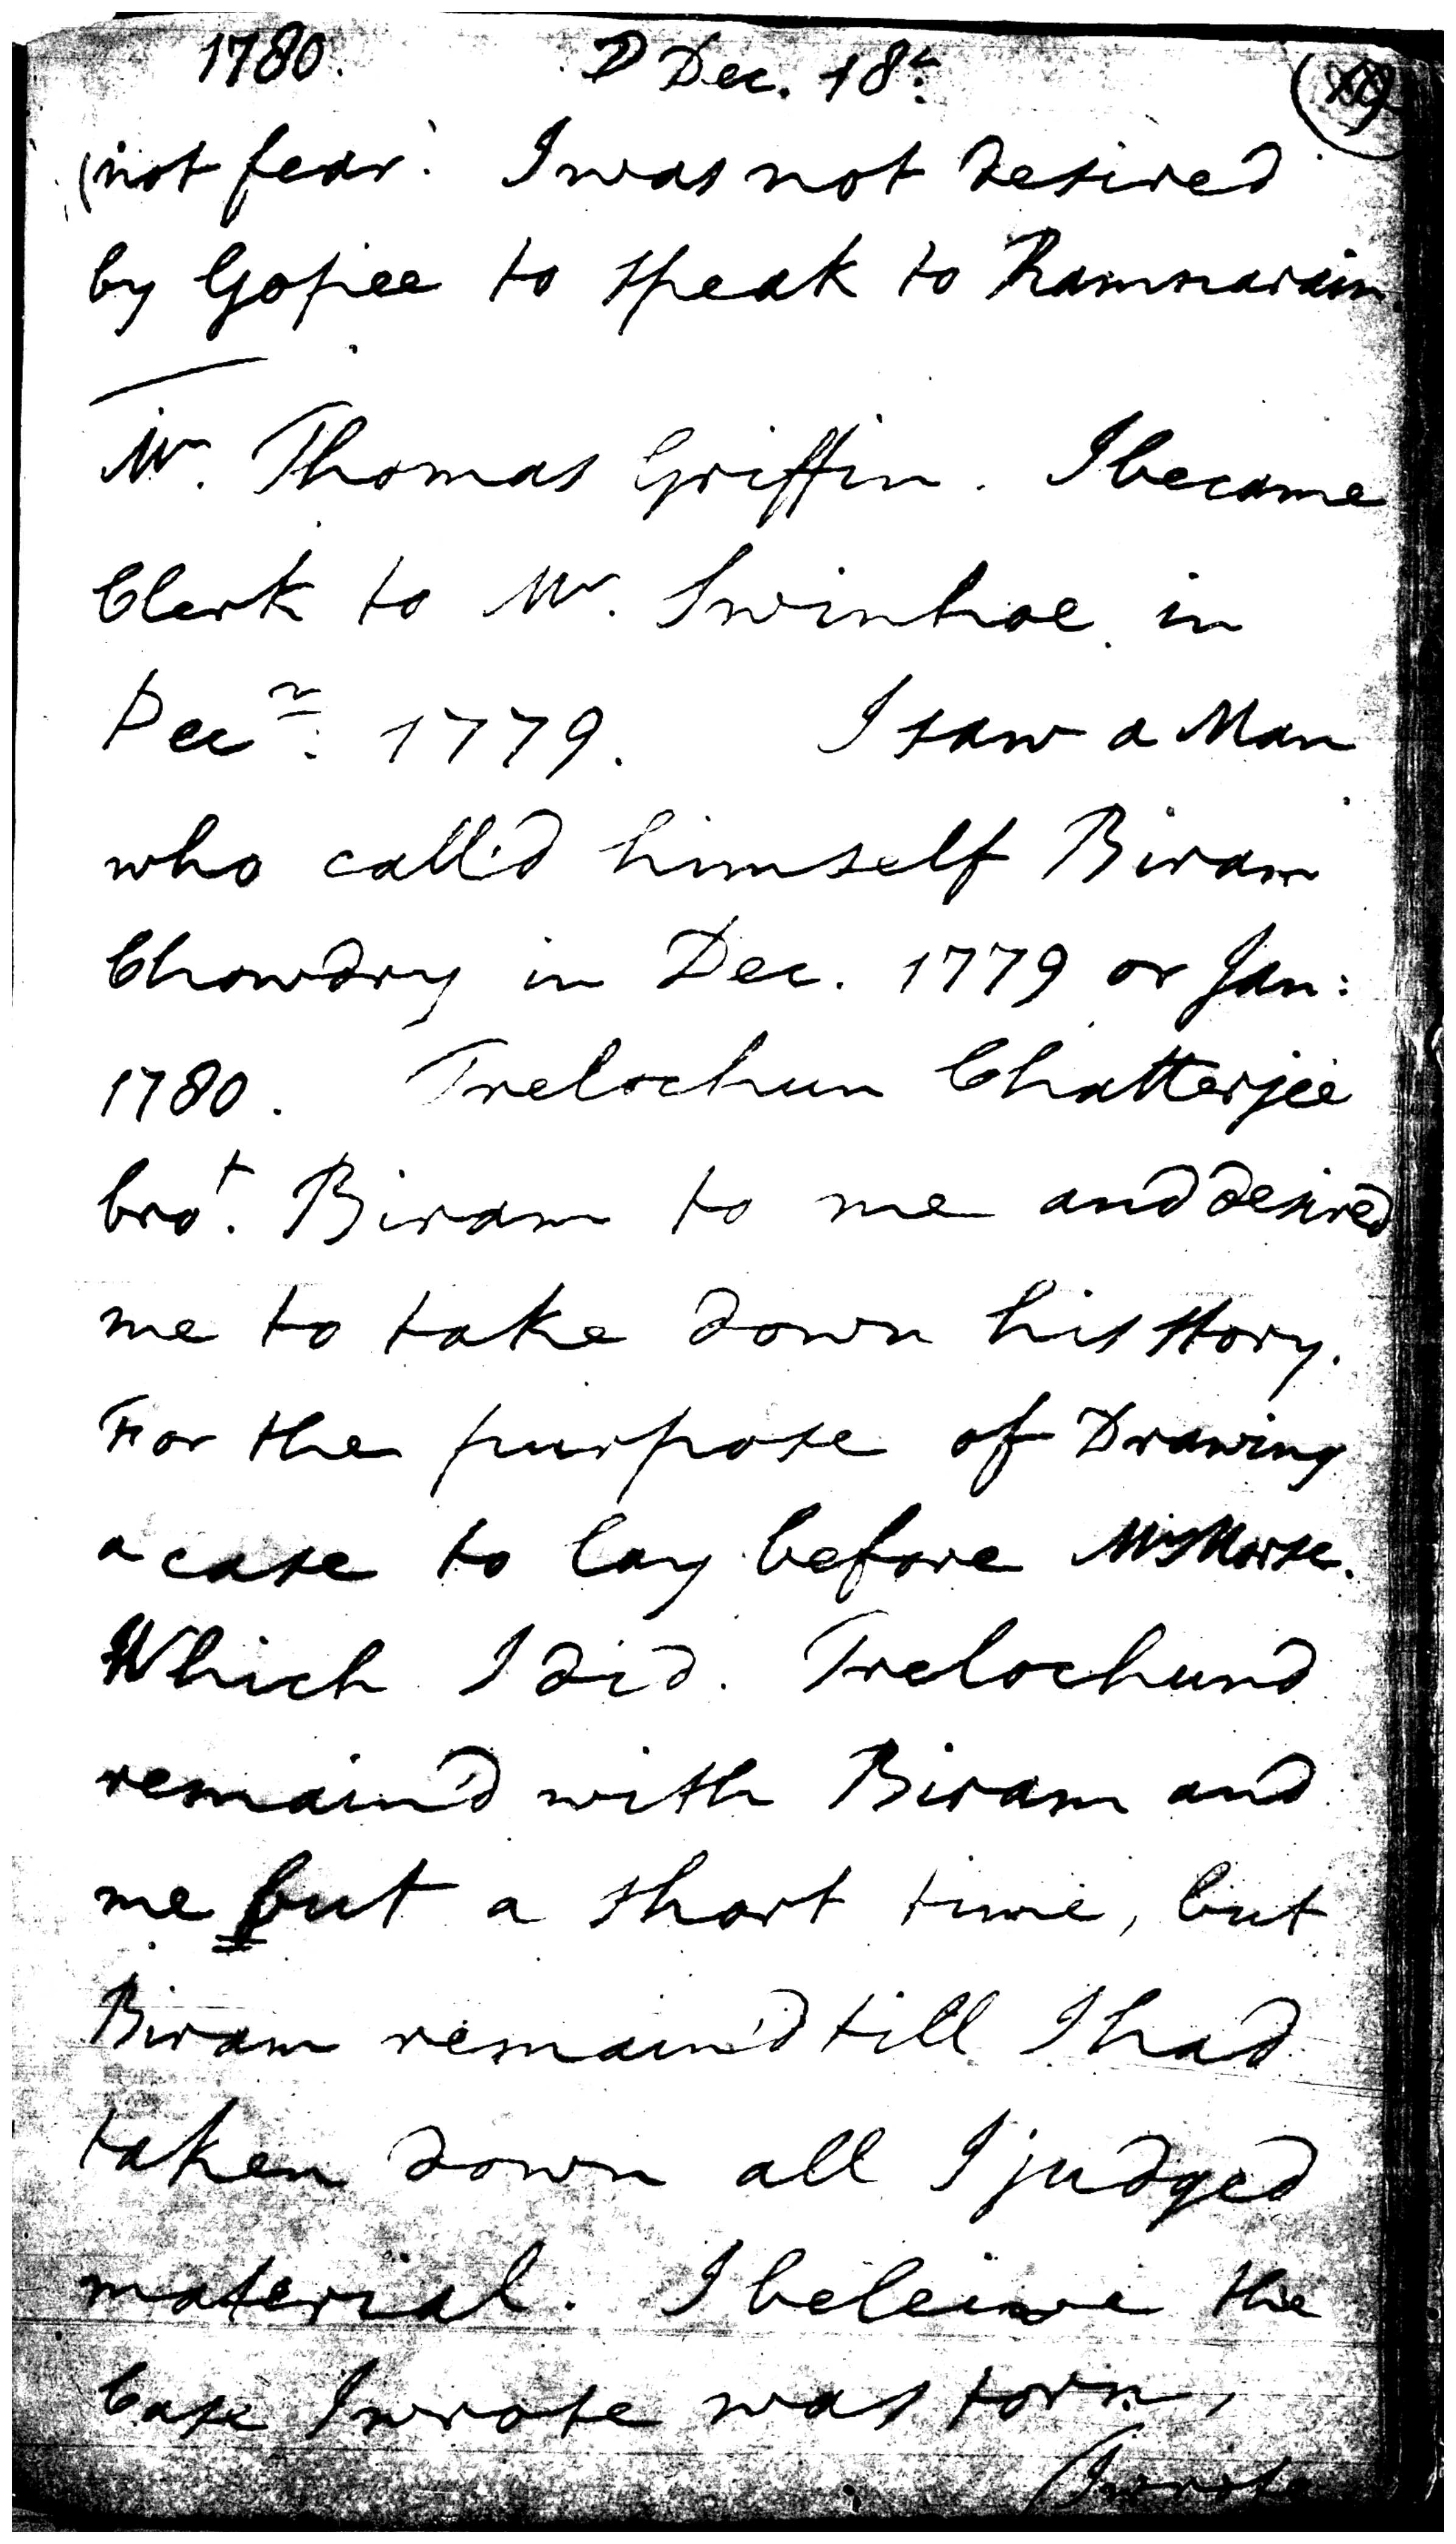 1780. D Dec. 18th
(not fear. I was not desired
by Gopee to speak to Ramnarain.
Mr. Thomas Griffin. I became
Clerk to Mr. Swinhoe in
Decr. 1779. I saw a Man
who call'd himself Biram
Chowdry in Dec. 1779 or Jan:
1780. Trelochun Chatterjee
brot. Biram to me and desired
me to take down his story.
For the purpose of Drawing
a case to lay before Mr Morse.
Which I did. Trelochund
remain'd with Biram and
me but a short time, but
Biram remain'd till I had
taken down all I judged
material. I beleive the
Case I wrote was torn,
(I wrote